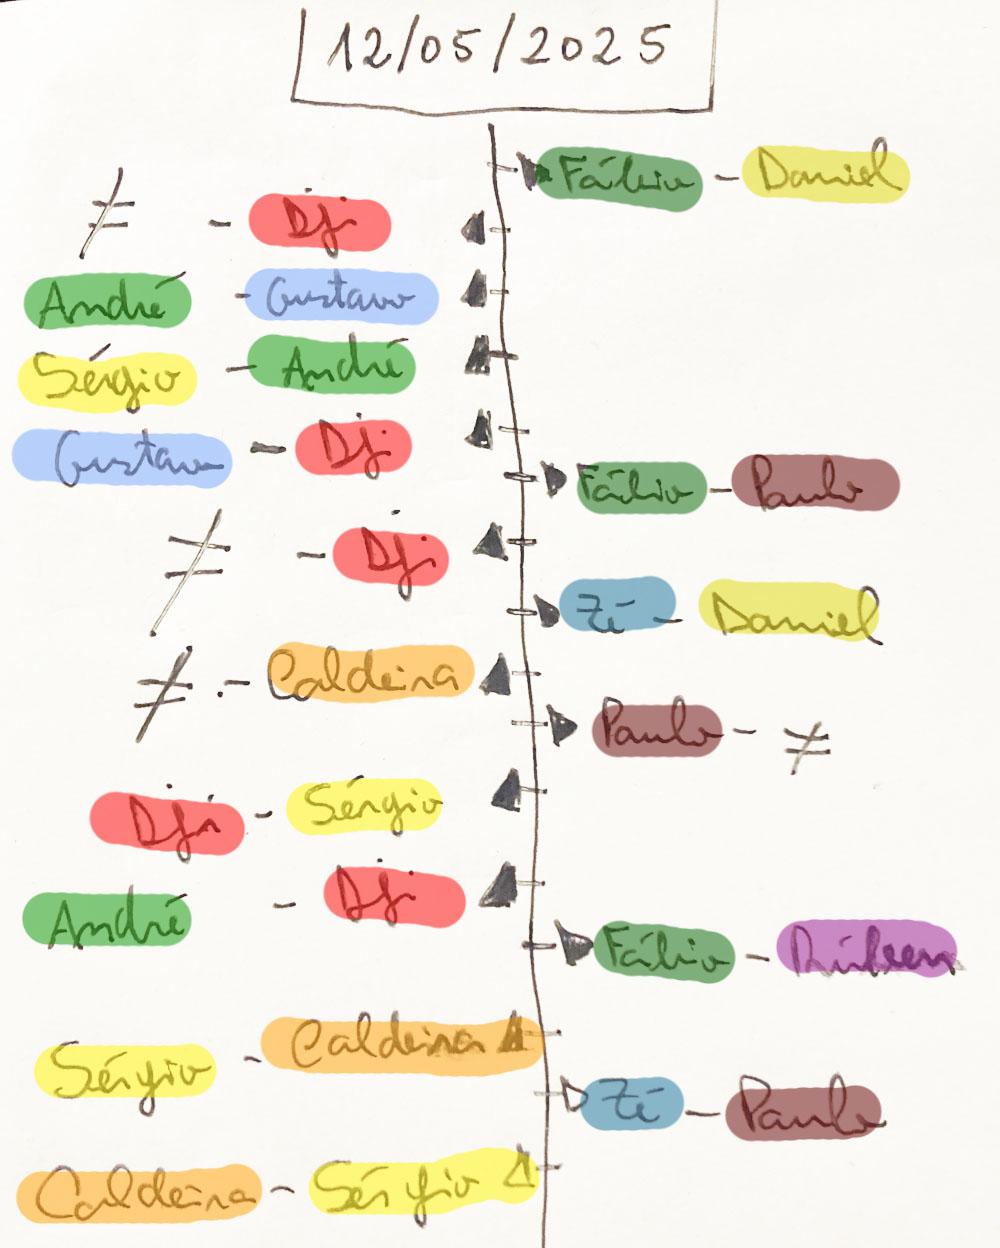 12/05/2025
Fábio - Daniel
≠ - Dji
André - Gustavo
Sérgio - André
Gustavo - Dji
Fábio - Paulo
≠ - Dji
Zé - Daniel
≠ - Caldeira
Paulo - ≠
Dji - Sérgio
André - Dji
Fábio - Rúben
Sérgio - Caldeira
Zé - Paulo
Caldeira - Sérgio